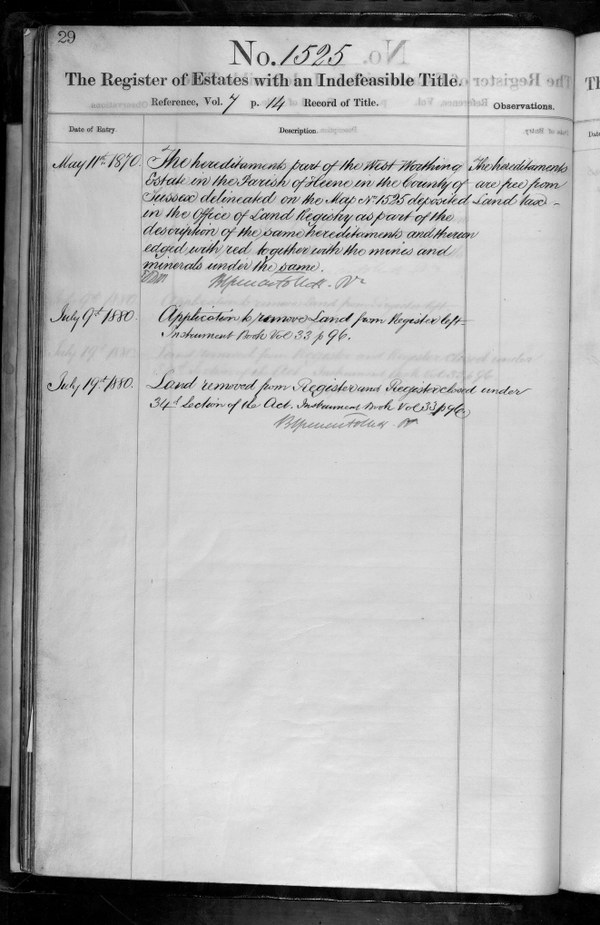 29
No. 1525
The Register of Estates with an Indefeasible Title.
Reference, Vol. 7 p. 14 Record of Title.
Observations.
Date of Entry
Description.
May 11th 1870.
The hereditaments part of the West Worthing
Estate in the Parish of Heene in the County of
Sussex delineated on the Map No 1525 deposited
in the Office of Land Registry as part of the
description of the same hereditaments and thereon
edged with red together with the mines and
minerals under the same.
The hereditaments
are free from
Land tax -
July 9th 1880.
Application to remove Land from Register left -
Instrument Book Vol 33 p 96.
July 19th 1880.
Land removed from Register and Register closed under
34th Section of the Act. Instrument Book Vol 33 p 96